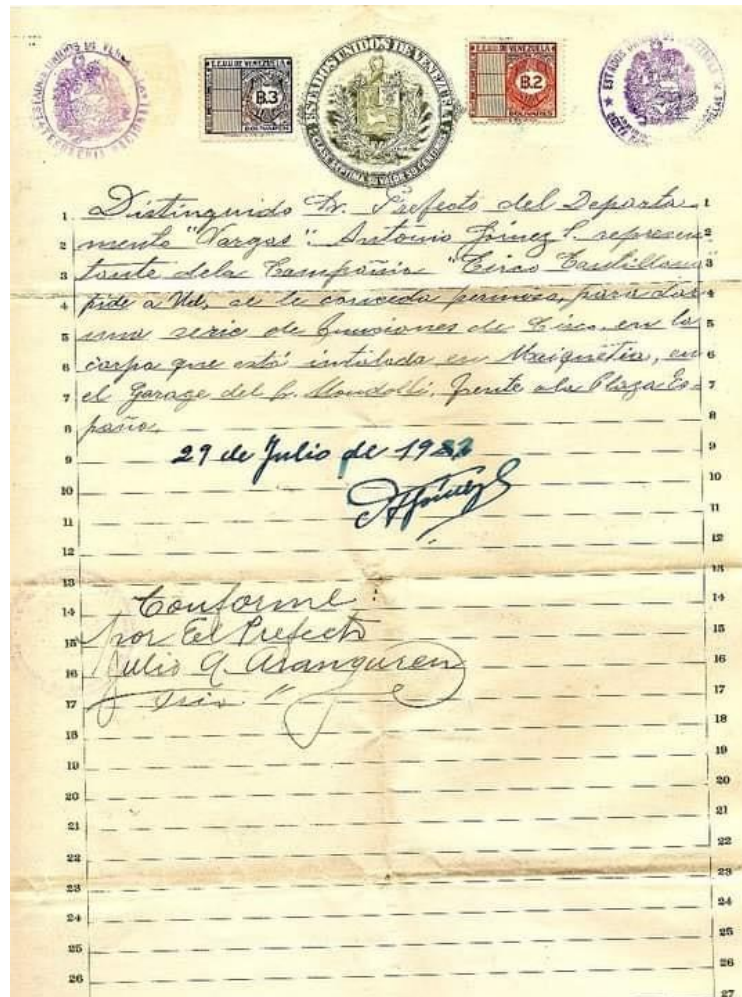 ESTADOS UNIDOS DE VENEZUELA
TESORERIA NACIONAL
E.E.U.U. DE VENEZUELA
B.3
BOLIVARES
ESTADOS UNIDOS DE VENEZUELA
CLASE SEPTIMA SU VALOR 50 CENTIMOS
E.E.U.U. DE VENEZUELA
B.2
BOLIVARES
ESTADOS UNIDOS DE VENEZUELA
1 Distinguido Sr. Prefecto del Departa- 1
2 mento "Vargas". Antonio Gómez P. represen 2
3 tante dela Compañia "Circo 3
4 pide a Ud, se le conceda permiso, para dar 4
5 una serie de funsiones de Circo, en la 5
6 carpa que está intalada en Maiquetia, en 6
7 el Garage del Sr. frente ala Plaza Es- 7
8 paña. 8
9 29 de Julio de 19 9
10 10
11 11
12 12
13 13
14 Conforme: 14
15 por El Prefecto 15
16 Julio A. Aranguren 16
17 Srio 17
18 18
19 19
20 20
21 21
22 22
23 23
24 24
25 25
26 26
27